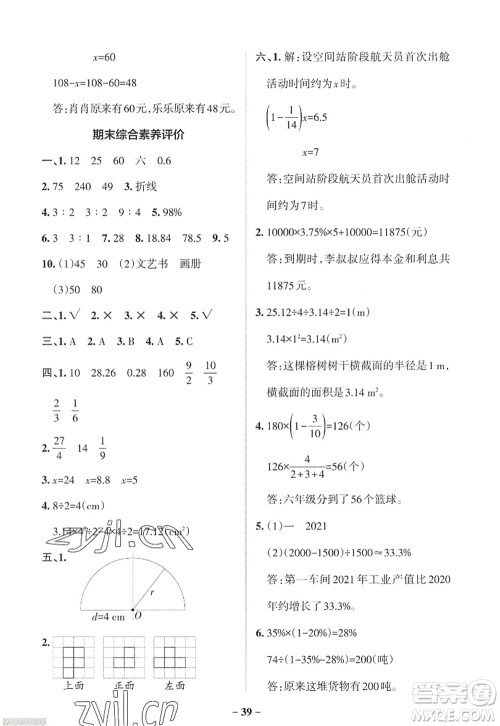 x=60
108-x=108-60=48
答:肖肖原来有60元,乐乐原来有48元。
期末综合素养评价
一、1. 12 25 60 六 0.6
2. 75 240 49 3. 折线
4. 3∶2 3∶2 5. 98%
6. 3 3∶1 8. 18.84 9. 78.5
10. (1)45 30 (2)文艺书 画册
(3)50 80
二、1. ✓ 2. × 3. × 4. × 5. ✓
三、1. A 2. A 3. B 4. A 5. C
四、1. 10 28.26 0.8 160 9/2 9/10
2/3 1/6
2. 27/4 14 1/9
3. x=24 x=8.8 x=5
4. 8÷2=4(cm)
3.14×4²÷2-4²÷2=17.12(cm²)
五、1.
r
d=4 cm O
2.
上面 正面 左面
六、1. 解:设空间站阶段航天员首次出舱
活动时间约为x时。
(1-1/14)x=6.5
x=7
答:空间站阶段航天员首次出舱活动时
间约为7时。
2. 10000×3.75%×5+10000=11875(元)
答:到期时,李叔叔应得本金和利息共
11875元。
3. 25.12÷4÷3.14÷2=1(m)
3.14×1²=3.14(m²)
答:这棵榕树树干横截面的半径是1 m,
横截面的面积是3.14 m²。
4. 180×(1-3/10)=126(个)
126×4/(2+3+4)=56(个)
答:六年级分到了56个篮球。
5. (1)一 2021
(2)(2000-1500)÷1500≈33.3%
答:第一车间2021年工业产值比2020
年约增长了33.3%。
6. 35%×(1-20%)=28%
74÷(1-35%-28%)=200(吨)
答:原来这堆货物有200吨。
- 39 -
zyjl.cn
zyjl.cn